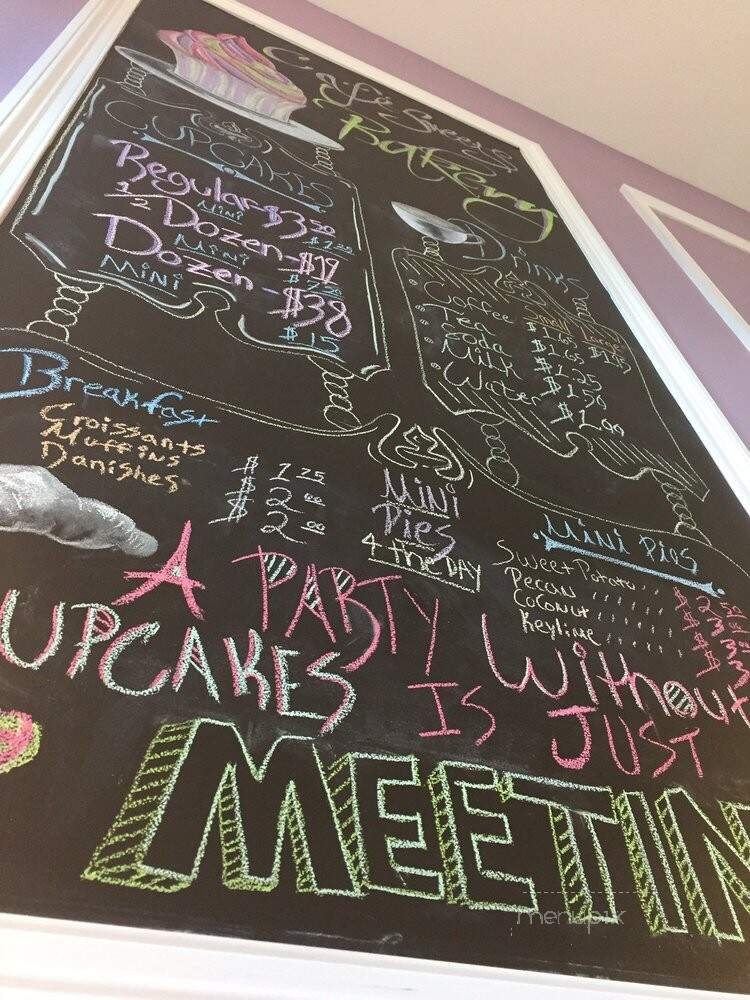 Cafe Sweets
Bakery
CUPCAKES
Regular $3.50
Mini
1/2 Dozen - $19
Mini
Dozen - $38
Mini $15
Drinks
Small Large
Coffee $1.65 $1.95
Tea $1.65
Soda $1.25
Milk $1.50
Water $1.00
Breakfast
Croissants $1.25
Muffins $2.00
Danishes $2.00
Mini
Pies
4 the DAY
Mini Pies
Sweet Potato
Pecan
Coconut
Keylime
A PARTY Without
UPCAKES IS JUST
MEETIN
menupix